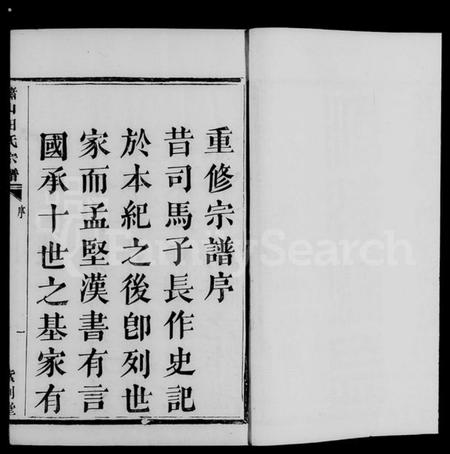 重修宗譜序
昔司馬子長作史記
於本紀之後卽列世
家而孟堅漢書有言
國承十世之基家有
山田氏宗譜
序
一
FamilySearch